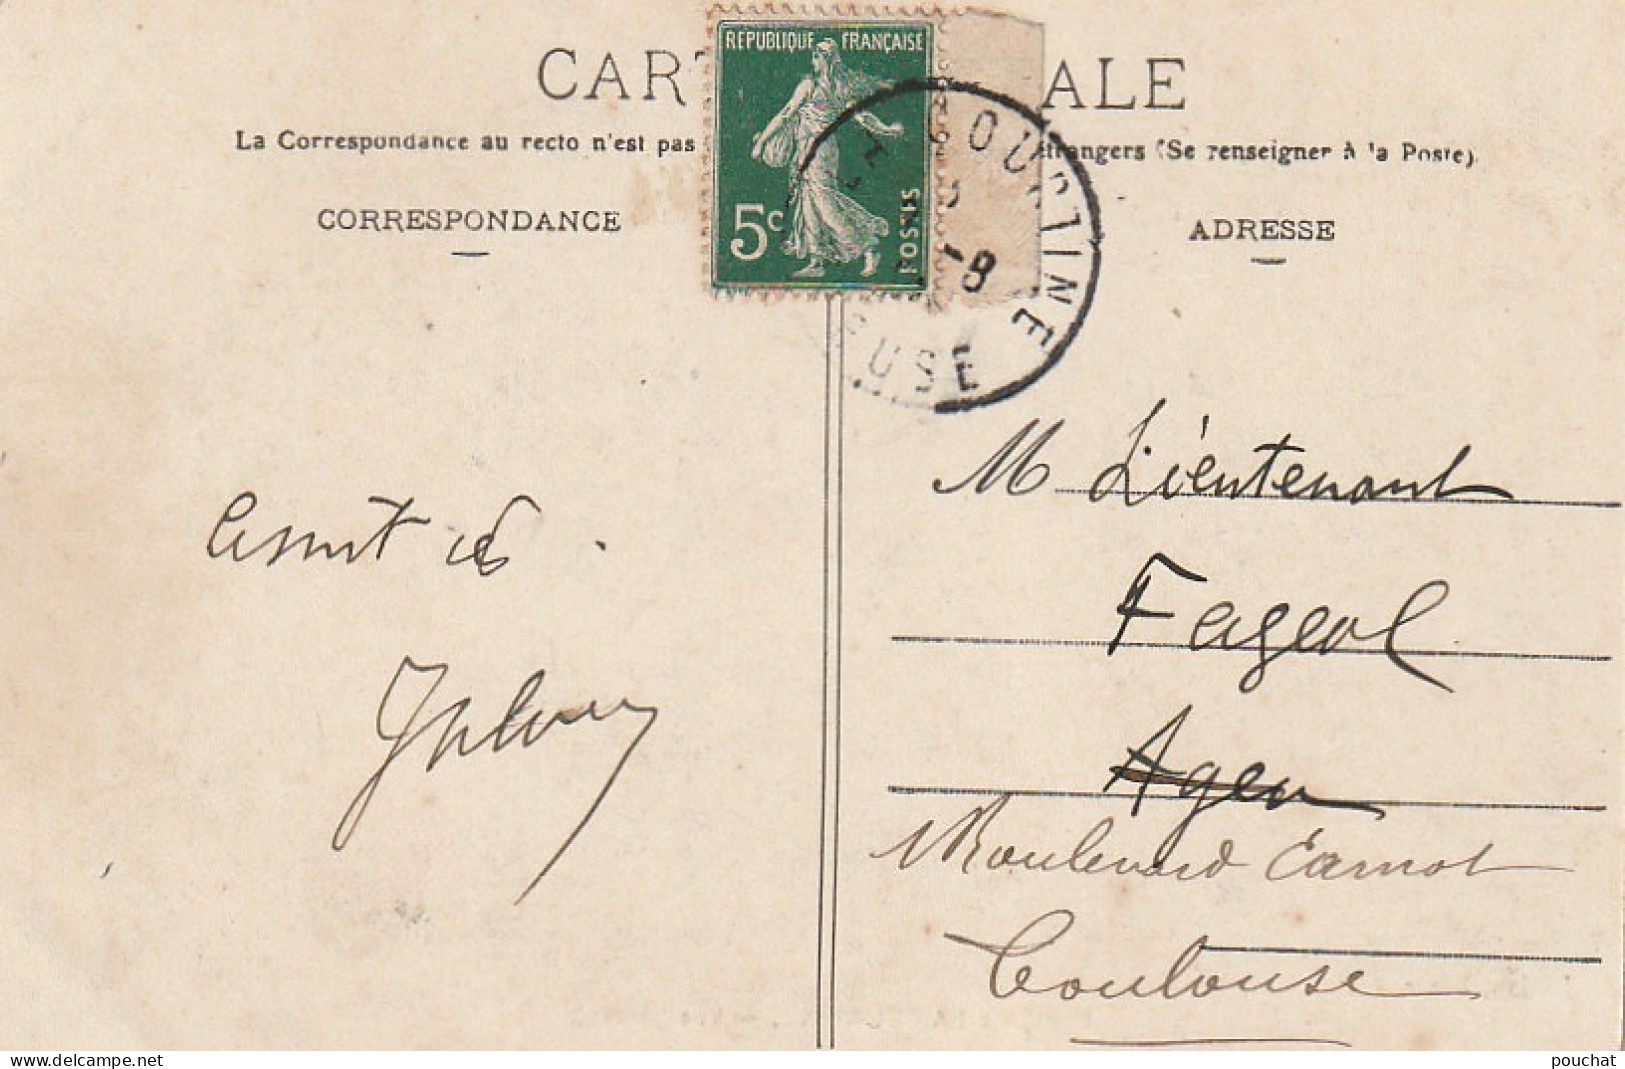 CARTE POSTALE
La Correspondance au recto n'est pas
étrangers (Se renseigner à la Poste)
CORRESPONDANCE
ADRESSE
REPUBLIQUE FRANÇAISE
5c
POSTES
COURTINE
-8
CREUSE
M Lieutenant
Fageol
Agen
Boulevard Carnot
Toulouse
www.delcampe.net
pouchat